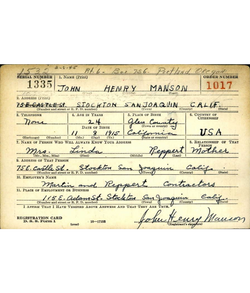 Box 726 Portland Oregon
SERIAL NUMBER
1. NAME (Print)
ORDER NUMBER
1335
JOHN HENRY MANSON
1017
2. ADDRESS (Print)
STOCKTON SAN JOAQUIN CALIF.
3. TELEPHONE
4. AGE IN YEARS
5. PLACE OF BIRTH
6. COUNTRY OF CITIZENSHIP
None
24
Glen County
DATE OF BIRTH
11 8 1915
California
USA
7. NAME OF PERSON WHO WILL ALWAYS KNOW YOUR ADDRESS
8. RELATIONSHIP OF THAT PERSON
Mrs. Linda Reppert Mother
9. ADDRESS OF THAT PERSON
Stockton San Joaquin Calif.
10. EMPLOYER'S NAME
Martin and Reppert Contractors
11. PLACE OF EMPLOYMENT OR BUSINESS
115 E. Adam St. Stockton San Joaquin Calif.
I AFFIRM THAT I HAVE VERIFIED ABOVE ANSWERS AND THAT THEY ARE TRUE.
REGISTRATION CARD
D. S. S. Form 1
John Henry Manson